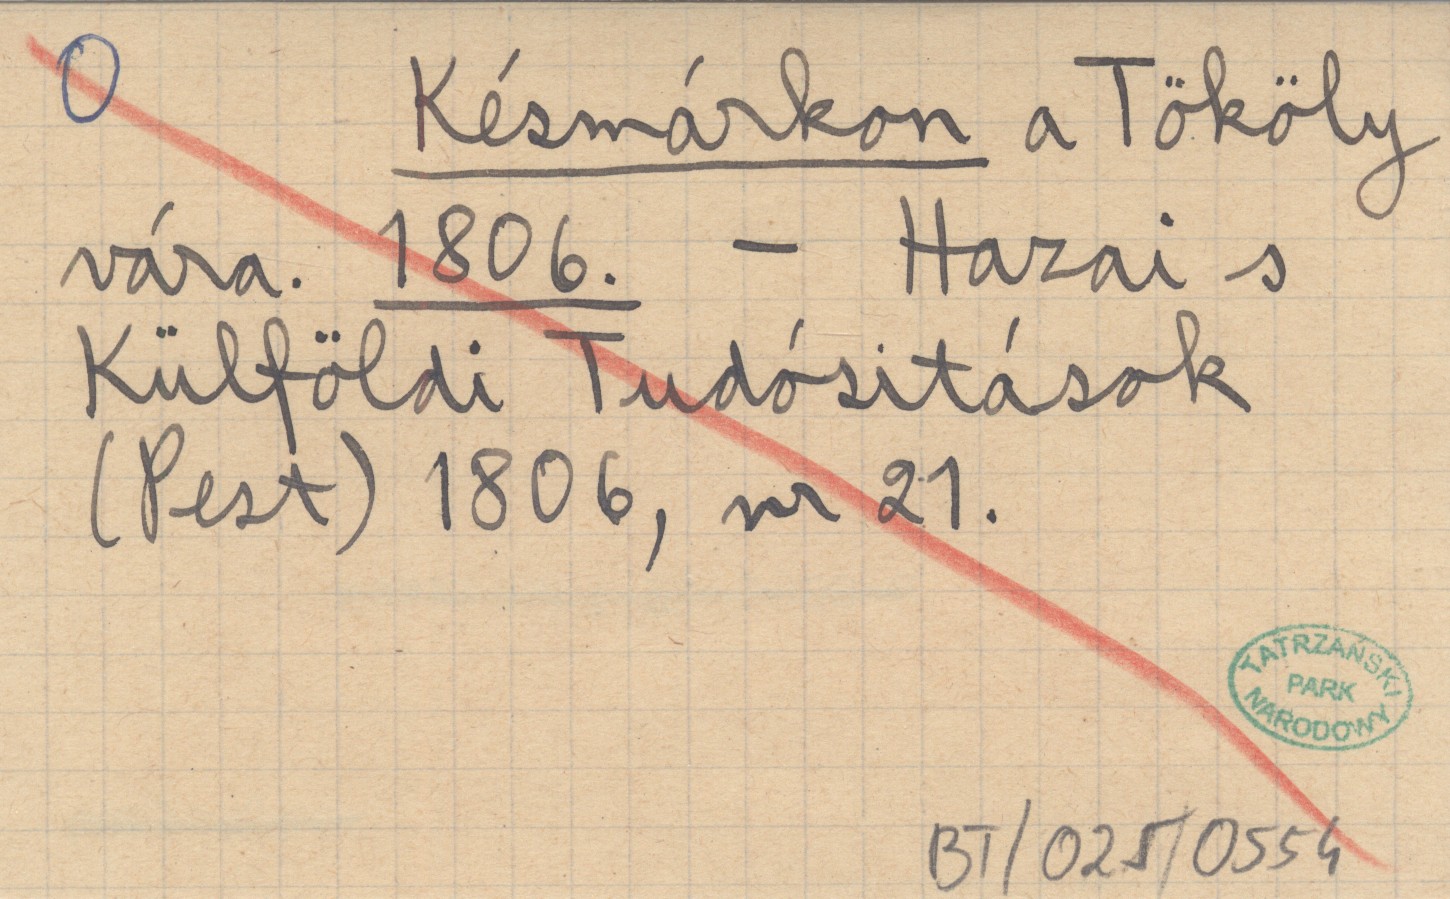 O Késmárkon a Tököly
vára. 1806. – Hazai s
Külföldi Tudósitások
(Pest) 1806, nr 21.
TATRZAŃSKI
PARK
NARODOWY
BT/025/0554